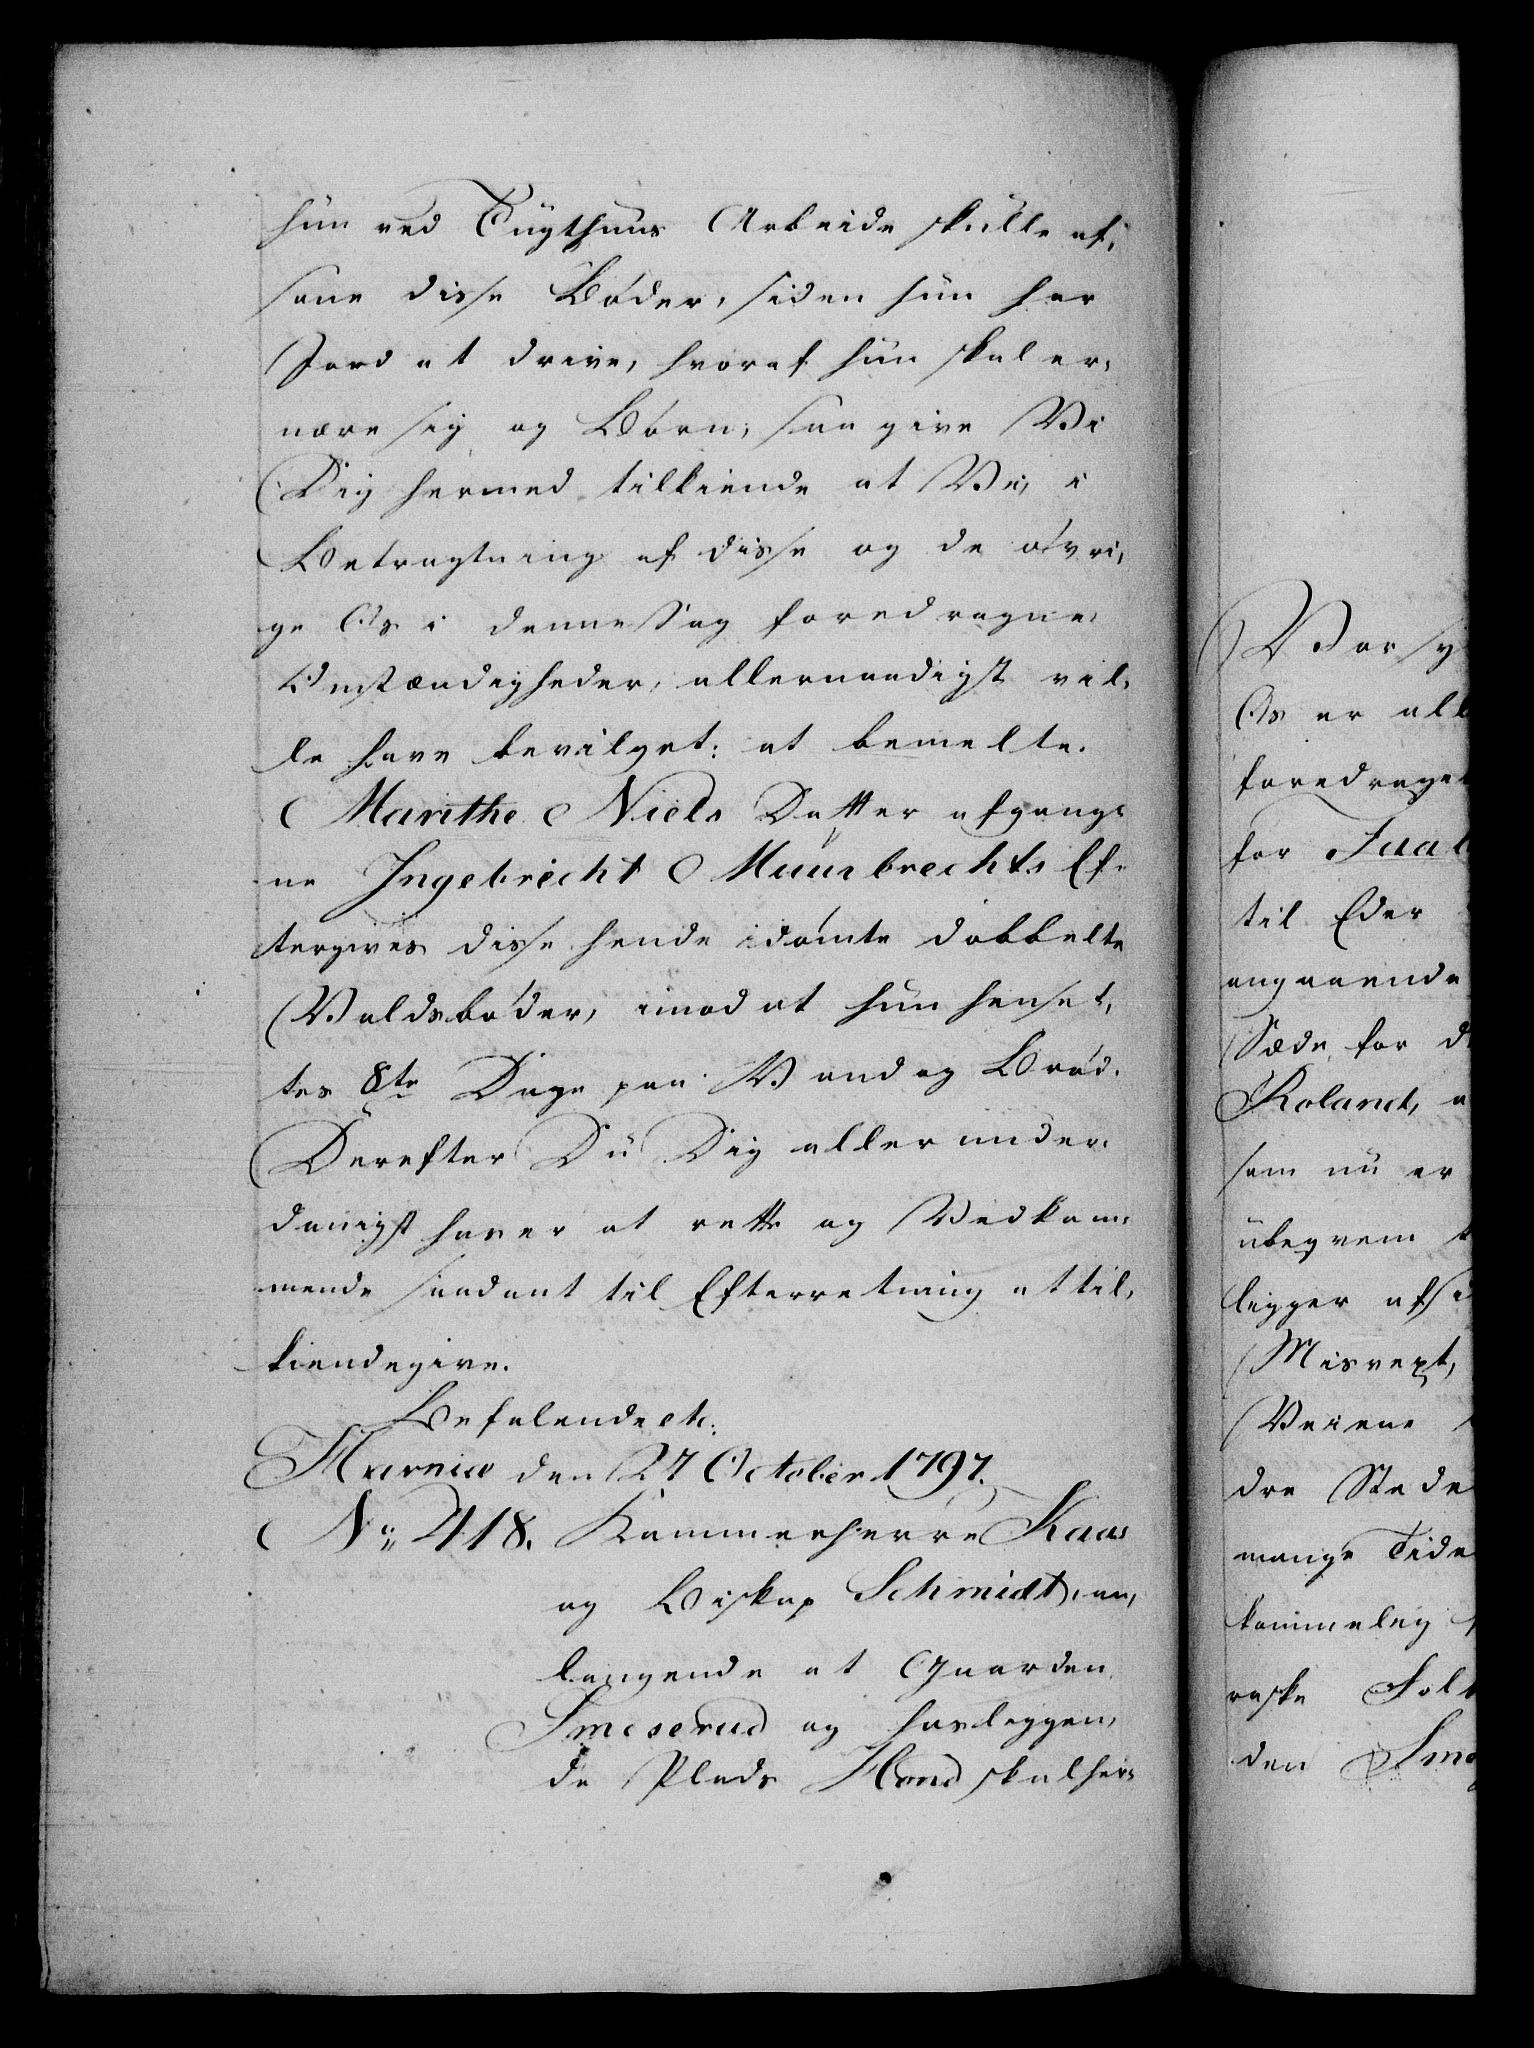 hun ved Tugthuus Arbeide skulle af,
sone disse Bøder, siden hun har
Jord at drive, hvoraf hun skal er,
nære sig og Børn; saa give Vi
Dig hermed tilkiende at Vi, i
Betragtning af disse og de øvri,
ge Os i denne Sag foredragne
Omstændigheder, allernaadigst vil,
le have bevilget: at bemelte
Marithe Niels Datter afgang,
ne Ingebrecht Muusbrechts Ef,
tergives disse hende idømte dobbelte
Voldsbøder, imod at hun hensæt,
tes 8te Dage paa Vand og Brød.
Derefter Du Dig allerunder,
danigst haver at rette og Vedkom,
mende saadant til Efterretning at til,
kiendegive.
Befalende etc:
Hafniæ den 27 October 1797.
No 418. Kammerherre Kaas
og Biskop Schmidt, an,
langende at Gaarden
Smeserud og hosliggen,
de Plads Hond skal her,
Vor sy
Os er all
foredraget
for Fuab
til Eder
angaaende
Sæde for d
Roland, a
som nu er
ubeqvem t
ligger afsi
Misvext,
Veiene
dre Stede
mange Tide
kommelig
raske Folk
den Sme